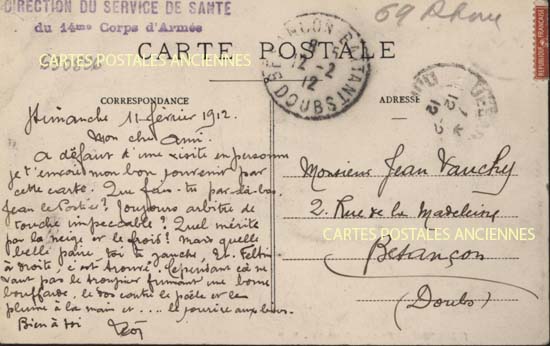 DIRECTION DU SERVICE DE SANTÉ
du 14ème Corps d'Armée
69 Rhone
CARTE POSTALE
BESANÇON BATTANT
8
12-2
12
DOUBS
CARTES POSTALES ANCIENNES
CORRESPONDANCE
ADRESSE
REPUBLIQUE FRANÇAISE
Dimanche 11 février 1912.
Mon cher ami.
A défaut d'une visite en personne
je t'envoie mon bon souvenir par
cette carte. Que fais-tu par-là-bas
Jean le Portier? Toujours arbitre de
touche impeccable? Quel mérite
par la neige et le froid! Mais quelle
belle paire, toi à gauche,
à droite, c'est trouvé. Cependant ça ne
vaut pas le troupier fumant une bonne
bouffarde, le dos contre le poêle et la
plume à la main et .... le sourire aux lèvres.
Bien à toi
Monsieur Jean Vauchey
2. Rue de la Madeleine
CARTES POSTALES ANCIENNES
Besançon
(Doubs)